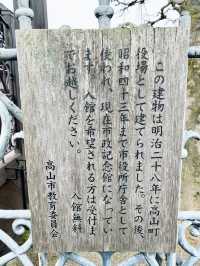 この建物は明治二十八年に高山町
役場として建てられました。その後、
昭和四十三年まで市役所庁舎として
使われ、現在市政記念館になってい
ます。入館を希望される方は受付ま
でお越しください。
入館無料
高山市教育委員会